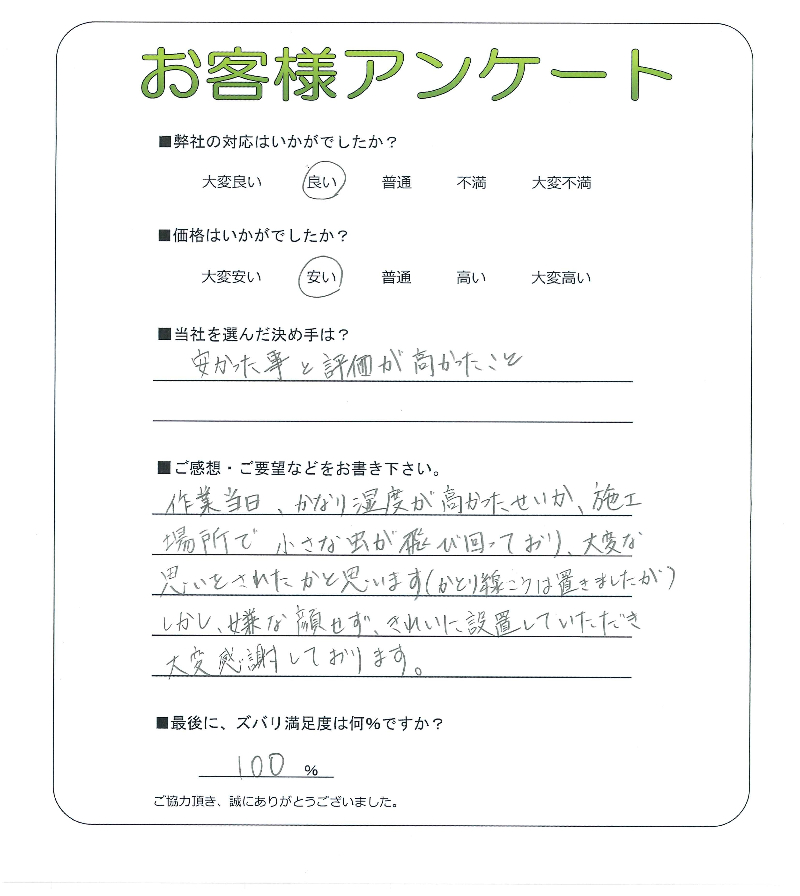 お客様アンケート
■弊社の対応はいかがでしたか?
大変良い 良い 普通 不満 大変不満
■価格はいかがでしたか?
大変安い 安い 普通 高い 大変高い
■当社を選んだ決め手は?
安かった事と評価が高かったこと
■ご感想・ご要望などをお書き下さい。
作業当日、かなり湿度が高かったせいか、施工
場所で小さな虫が飛び回っており、大変な
思いをされたかと思います(かとり線こうは置きましたが)
しかし、嫌な顔せず、きれいに設置していただき
大変感謝しております。
■最後に、ズバリ満足度は何%ですか?
100 %
ご協力頂き、誠にありがとうございました。